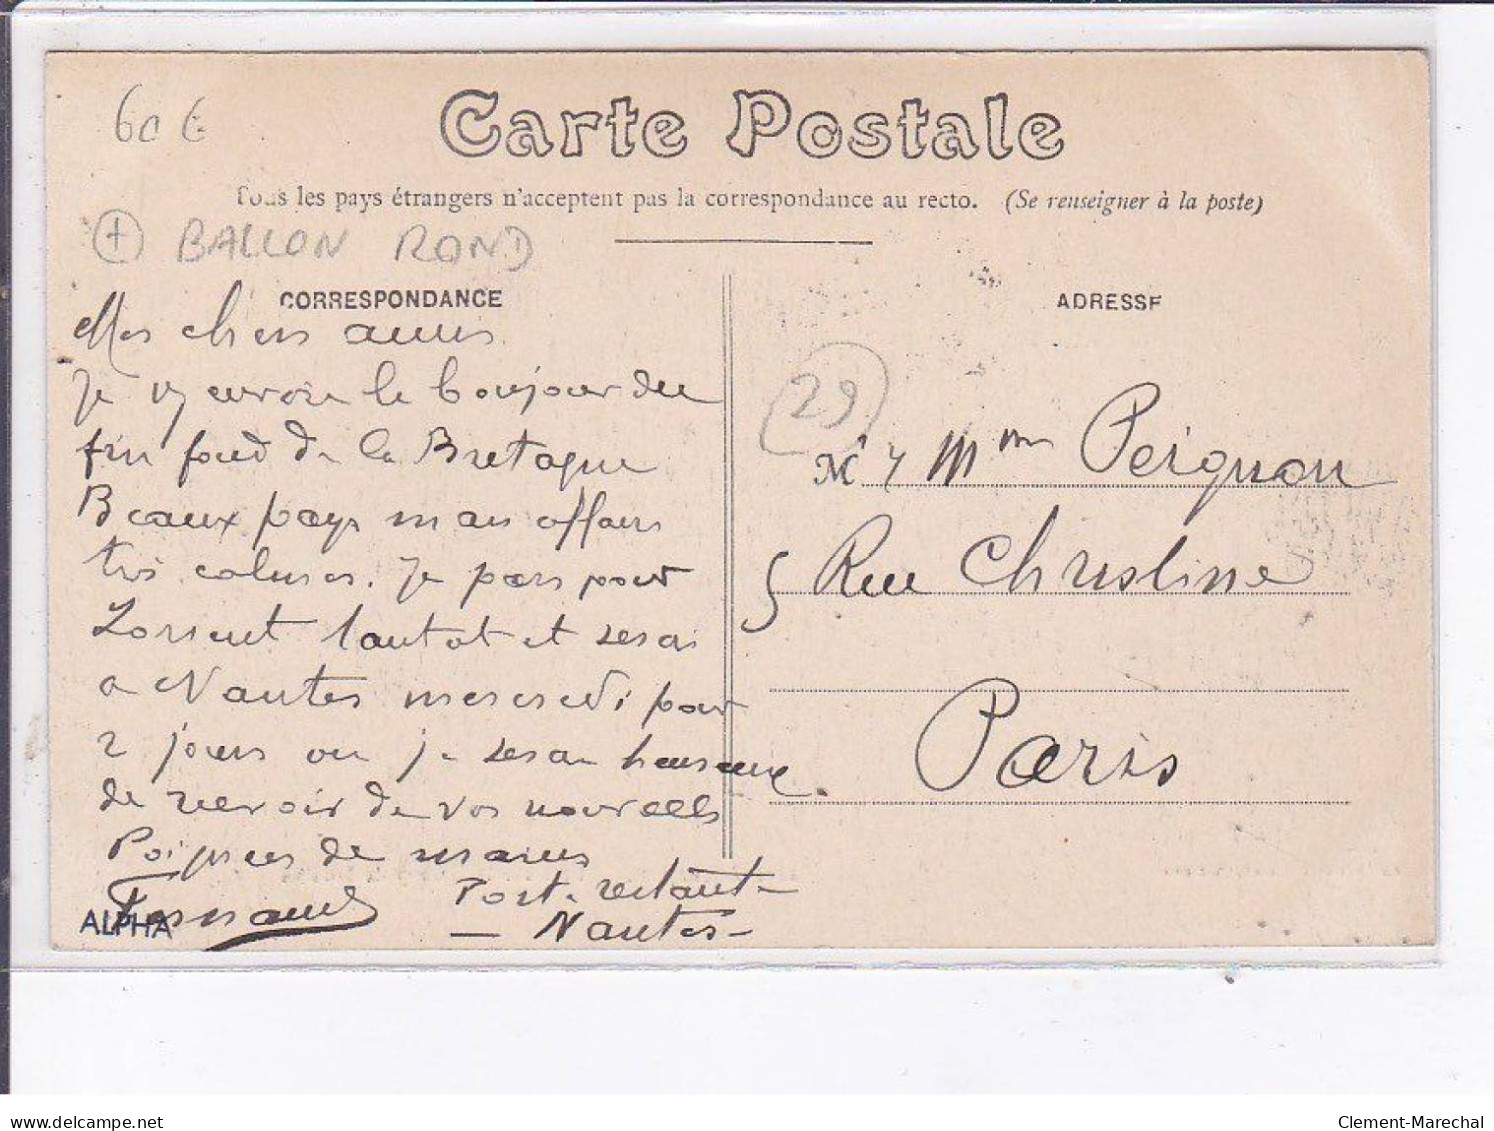 60 €
Carte Postale
Tous les pays étrangers n'acceptent pas la correspondance au recto. (Se renseigner à la poste)
+ BALLON ROND
CORRESPONDANCE
Mes chers amis
Je vs envoie le bonjour du
fin fond de la Bretagne
Beaux pays mais affaires
très calmes. Je pars pour
Lorient tantot et serai
a Nantes mercredi pour
2 jours ou je serai heureux.
de recevoir de vos nouvelles
Poignees de mains
Fernand
Post. restante
— Nantes —
ALPHA
ADRESSE
29
M r & Mme Peignon
5 Rue Christine
Paris
delcampe.net
Clement-Marechal